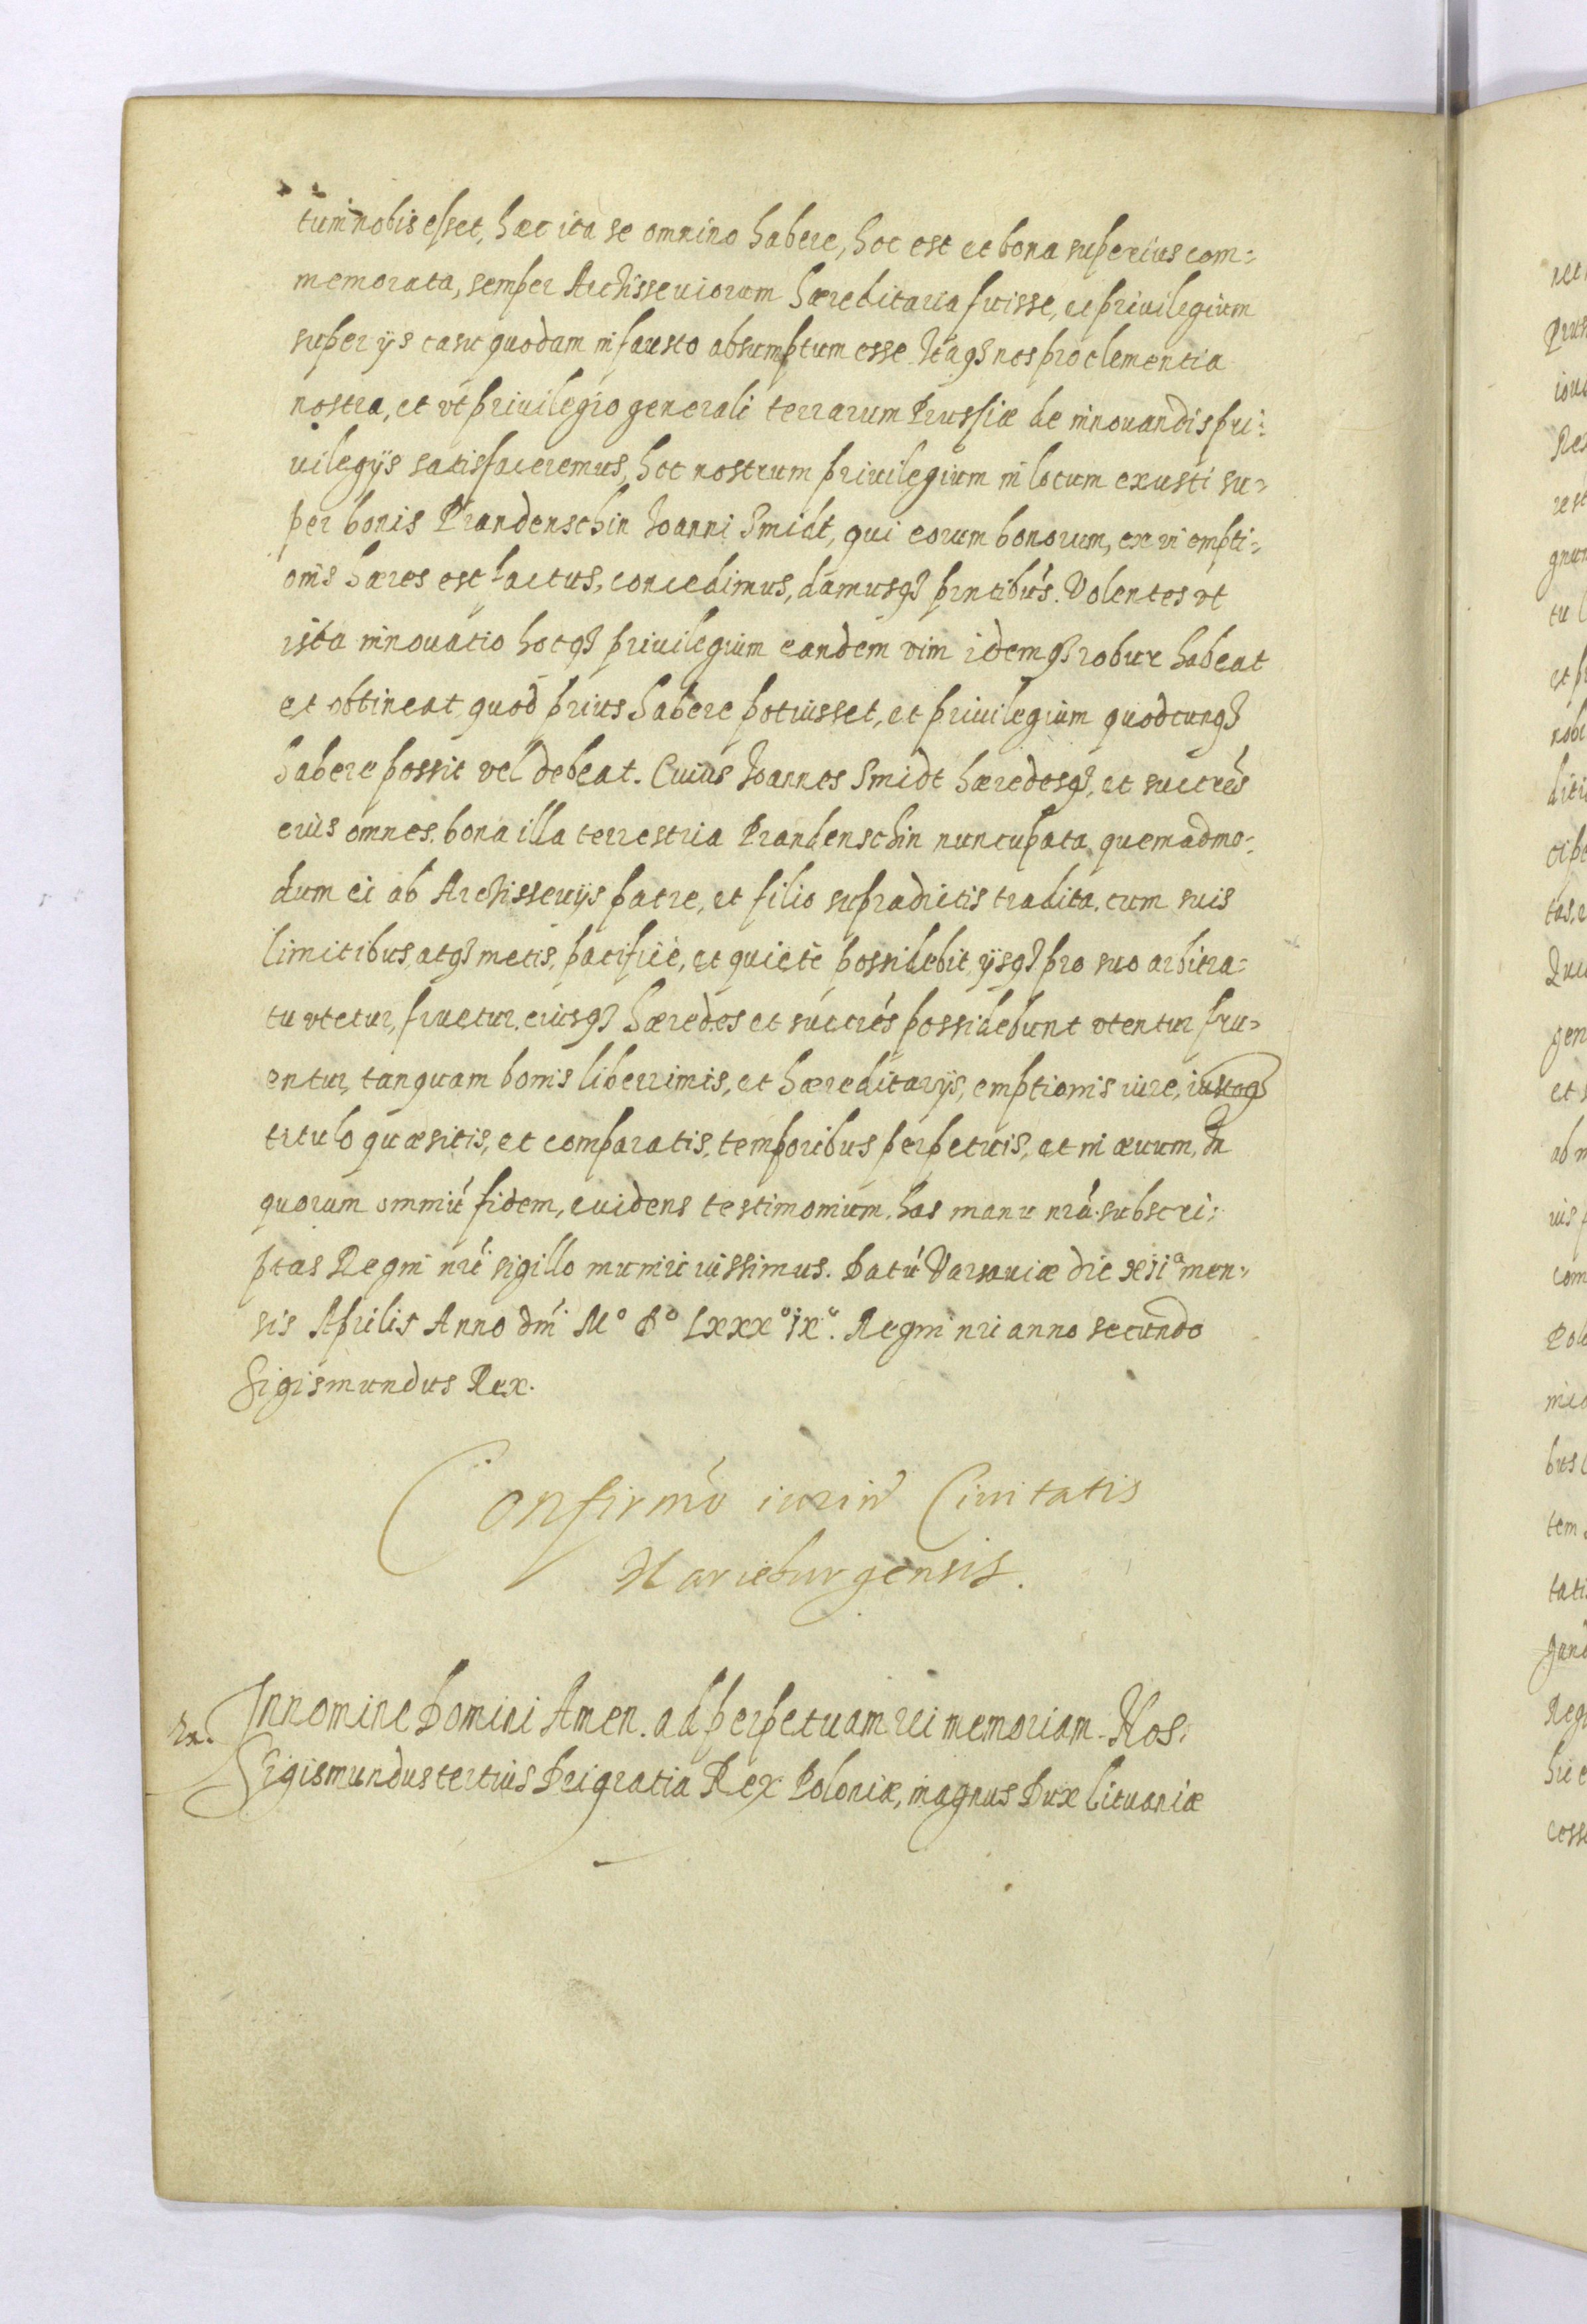 tum nobis esset, hæc ita se omnino habere, hoc est et bona superius com=
memorata, semper Archisseuiorum hæreditaria fuisse, et priuilegium
super ijs casu quodam infausto absumptum esse. Itaq3 nos pro clementia
nostra, et vt priuilegio generali terrarum Prussiæ de innouandis pri=
uilegijs satisfaceremus, hoc nostrum priuilegium in locum exusti su=
per bonis Prandenschin Ioanni Smidt, qui eorum bonorum, ex vi empti=
onis hæres est factus, concedimus, damusq3 pñtibus. Volentes vt
ista innouatio hocq3 priuilegium eandem vim idemq3 robur habeat
et obtineat quod prius habere potuisset, et priuilegium quodcunq3
habere possit vel debeat. Cuius Ioannes Smidt hæredesq3, et succrẽs
eius omnes, bona illa terrestria Prandenschin nuncupata quemadmo=
dum ei ab Archisseuijs patre, et filio supradictis tradita, cum suis
limitibus, atq3 metis, pacificè, et quietè possidebit, ijsq3 pro suo arbitra=
tu vtetur, fruetur, eiusq3 hæredes et succrẽs possidebunt vtentur fru=
entur, tanquam bonis liberrimis, et hæreditarijs, emptionis iure, iustoq3
titulo quæsitis, et comparatis, temporibus perpetuis, et in æuum, In
quorum omniũ fidem, euidens testimonium, has manu nrã subscri=
ptas Regni nrĩ sigillo muniri iussimus. Datũ Varsauiæ die XIIª men=
sis Aprilis Anno dñi Mº Dº Lxxxº ixº. Regni nri anno secundo
Sigismundus Rex.
Confirmõ iuriũ Ciuitatis
Marieburgensis.
In nomine Domini Amen. ad perpetuam rei memoriam. Nos
Sigismundus tertius Dei gratia Rex Poloniæ, magnus Dux Lituaniæ